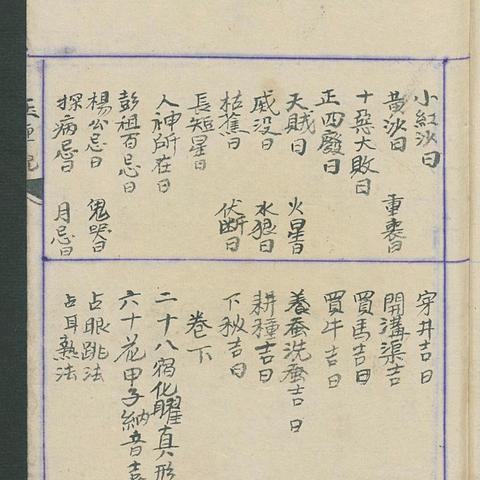 小紅沙日
黃沙日 重喪日
十惡大敗日
正四廢日
天賊日 火星日
滅没日 水狼日
枯蕉日 伏断日
長短星日
人神所在日
彭祖百忌日
楊公忌日 鬼哭日
探病忌日 月忌日
穿井吉日
開溝渠吉
買馬吉日
買牛吉日
養蚕洗蚕吉日
耕種吉日
下秧吉日
卷下
二十八宿化曜真形
六十花甲子納音吉
占眼跳法
占耳熱法